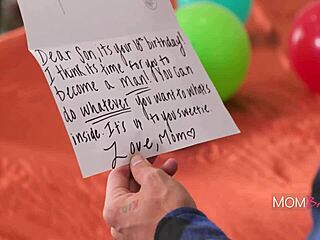 Dear Son, it's your birthday!
I think it's time for you to
become a man! You can
do whatever you want to what's
inside. It's to you sweetie.
Love, Mom♡
MOM